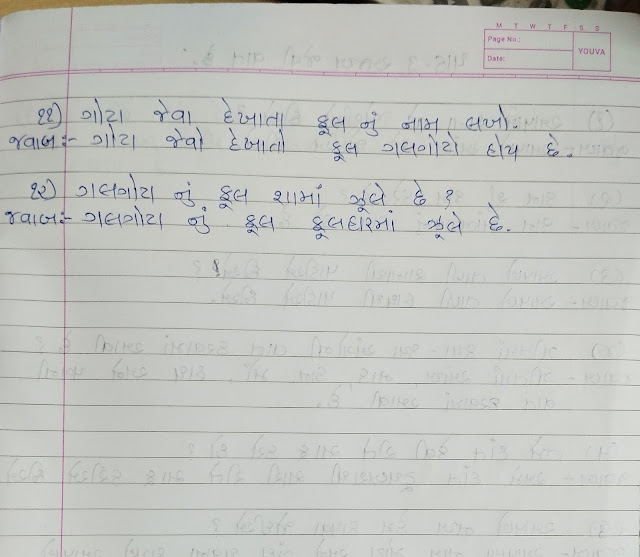 M T W T F S S
Page No.:
Date:
YOUVA
૧૧) ગોટા જેવા દેખાતા ફૂલ નું નામ લખો.
જવાબ:- ગોટા જેવો દેખાતો ફૂલ ગલગોટો હોય છે.
૧૨) ગલગોટા નું ફૂલ શામાં ઝૂલે છે ?
જવાબ:- ગલગોટા નું ફૂલ ફૂલહારમાં ઝૂલે છે.